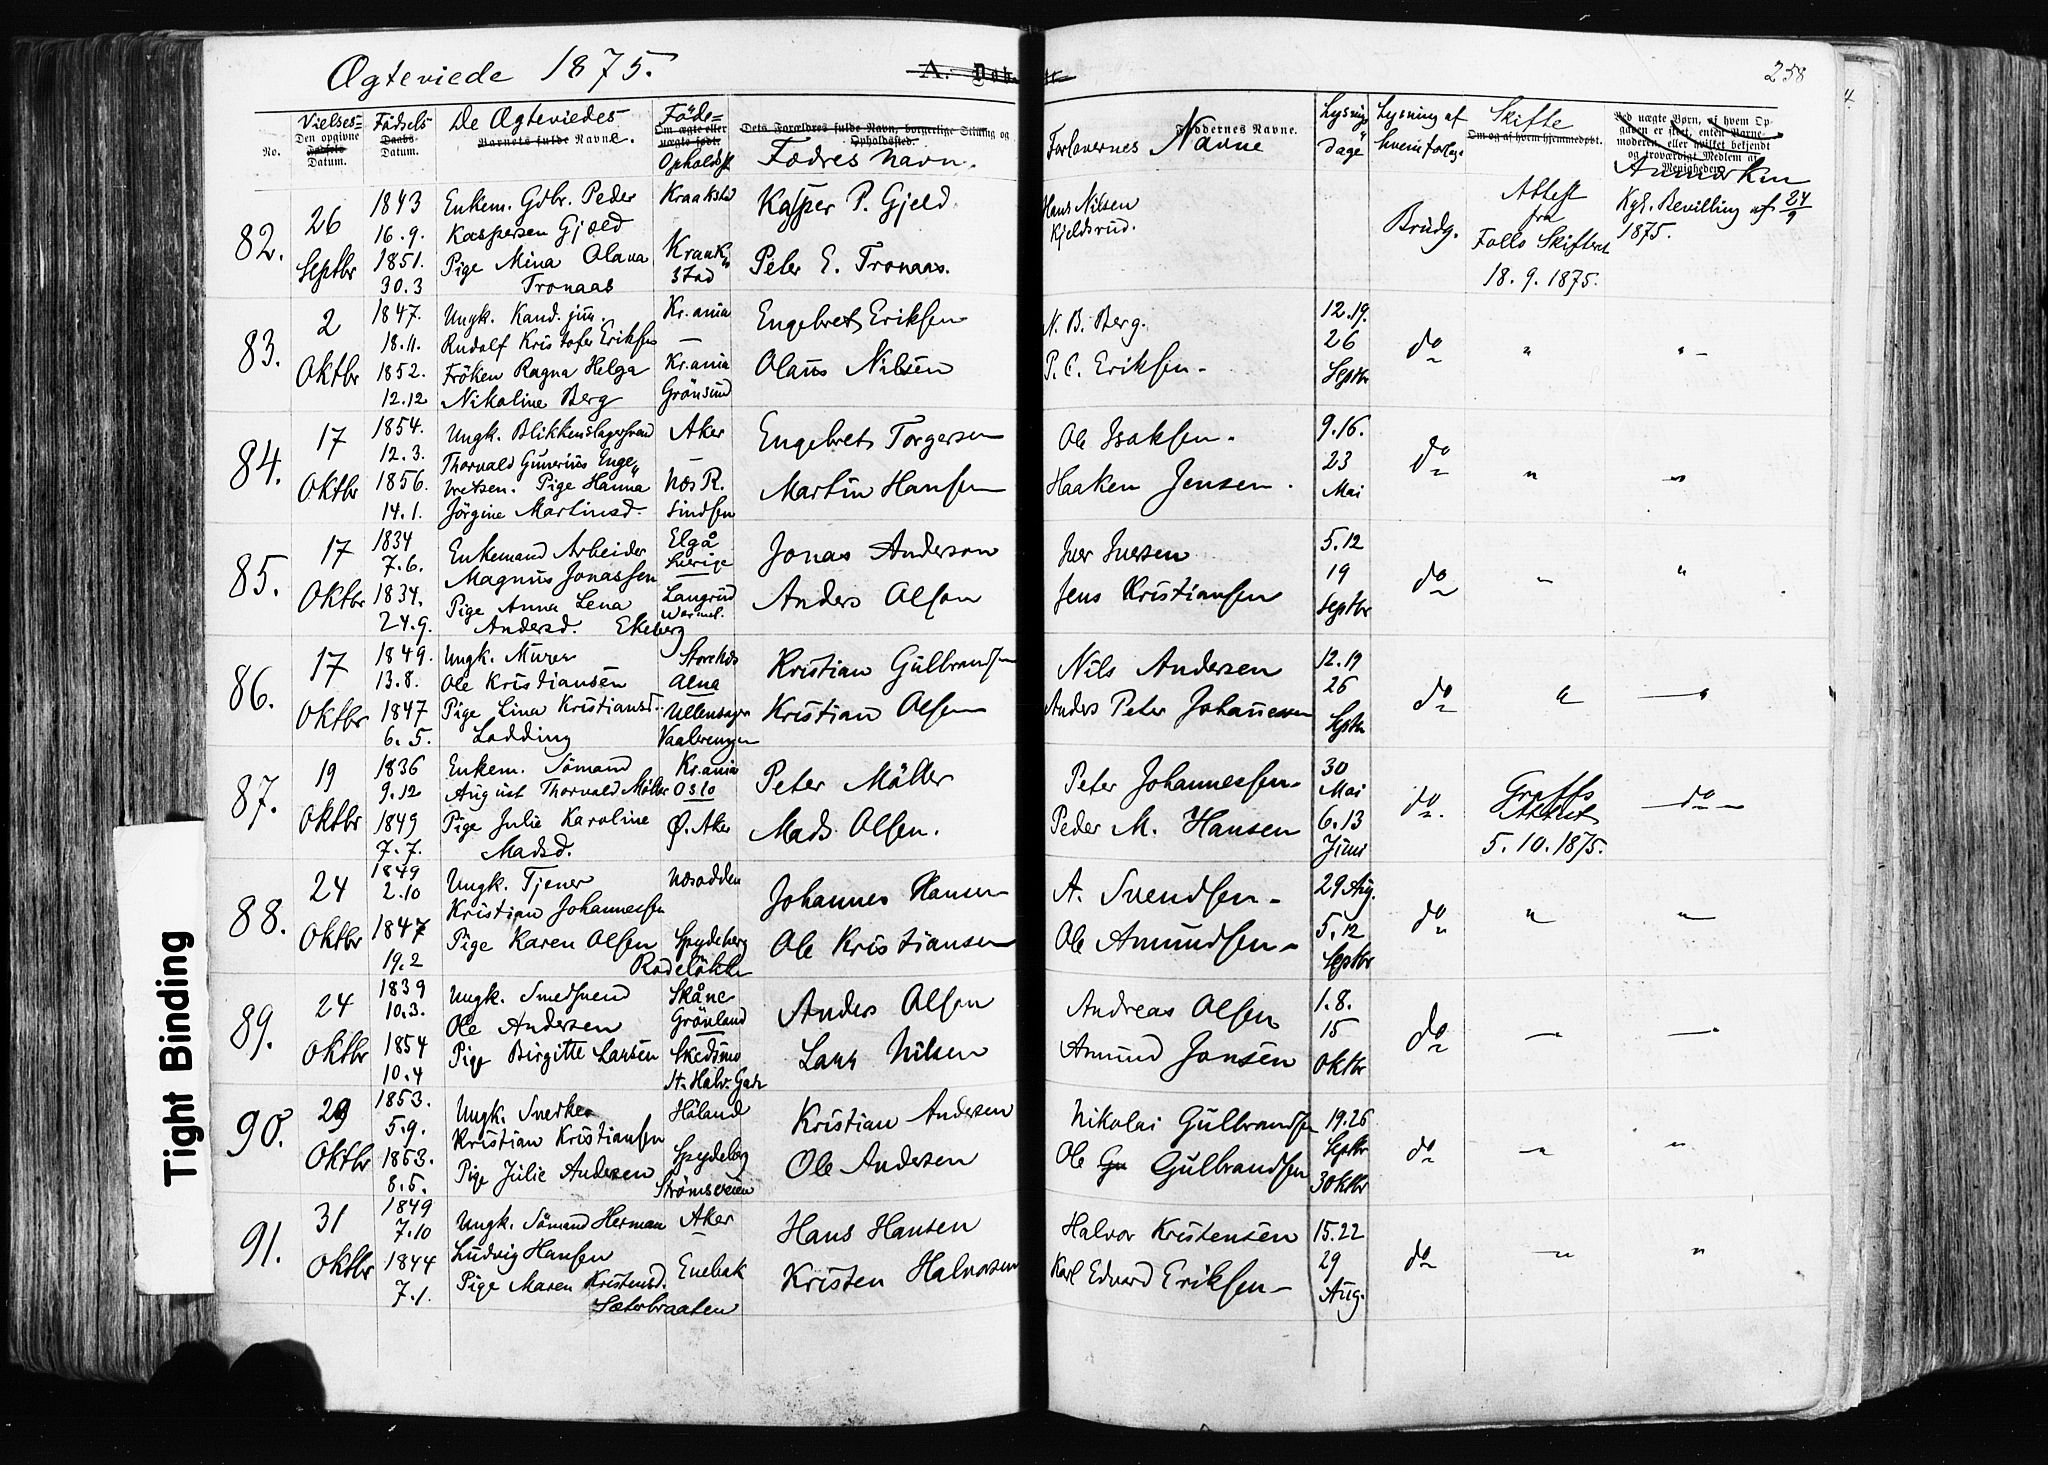 Ægteviede 1875.
A. Døb
258
No.
Vielses=
Den opgivne
Fødsels
Datum.
Fødsels
Daabs-
Datum.
De Ægteviedes
Barnets fulde Navne.
Føde=
Om ægte eller
uægte født.
Opholdsst
Dets Forældres fulde Navn, borgerlige Stilling og
Opholdssted.
Fædres Navn.
Faddernes Navne.
Forlovernes Navne
Lysnings
dage
Lysning af
hvem forlg.
Skifte
Om og af hvem hjemmedøbt.
Ved uægte Børn, af hvem Op-
gaven er skeet, enten Barne-
moderen, eller hvilket bekjendt
og troværdigt Medlem af
Menigheden.
Anmærkn
82.
26
Septbr
1843
16.9.
1851.
30.3
Enkem. Gdbr. Peder
Kaspersen Gjeld
Pige Mina Olava
Tronaas
Kraakstad
Kraak
stad
Kasper P. Gjeld
Peter E. Tronaas.
Hans Nilsen
Kjeldsrud.
Brudg.
Attest
fra
Follo Skifteret
18.9.1875.
Kgl. Bevilling af 24/9
1875.
83.
2
Oktbr
1847.
18.11.
1852.
12.12
Ungk. Kand. jur.
Rudolf Kristofer Eriksen
Frøken Ragna Helga
Nikoline Berg
Kr.ania
—
Kr.ania
Grönsund
Engebret Eriksen
Olaus Nilsen
N. B. Berg.
P. C. Eriksen -
12.19.
26
Septbr
do
"
" -
84.
17
Oktbr
1854.
12.3.
1856.
14.1.
Ungk. Blikkenslagersvend
Thorvald Gunerius Enge
bretsen. Pige Hanna
Jörgine Martinsd.
Aker
—
Næs R.
Sindsen
Engebret Torgersen
Martin Hansen
Ole Isaksen -
Haaken Jensen.
9.16.
23
Mai
do
"
"
85.
17
Oktbr
1834
7.6.
1834.
24.9.
Enkemand Arbeider
Magnus Jonassen
Pige Anna Lena
Andersd. Ekeberg
Elgå
Sverige
Langrud
Wermel.
Jonas Anderson
Anders Olson
Iver Iversen
Jens Kristiansen
5.12
19
Septbr
do
"
"
86.
17
Oktbr
1849.
13.8.
1847
6.5.
Ungk. Murer
Ole Kristiansen
Pige Lina Kristiansd.
Lodding
Storelvdal
Alna
Ullensager
Vaalerengen
Kristian Gulbrandsen
Kristian Olsen
Nils Andersen
Anders Peter Johannesen
12.19
26
Septbr
do
"
"
87.
19
Oktbr
1836
9.12
1849
7.7.
Enkem. Sömand
August Thorvald Möller
Pige Julie Karoline
Madsd.
Kr.ania
Oslo
Ø. Aker
Peter Möller
Mads Olsen.
Peter Johannessen -
Peder M. Hansen
30
Mai
6.13
Juni
do.
Graffs
Attest
5.10.1875.
do
88.
24
Oktbr
1849
2.10
1847
19.2
Ungk. Tjener
Kristian Johannessen
Pige Karen Olsen
Næsodden
Spydeberg
Rodeløkken
Johannes Hansen
Ole Kristiansen
A. Svendsen -
Ole Amundsen -
29 Aug.
5.12
Septbr
do
"
"
89.
24
Oktbr
1839
10.3.
1854
10.4
Ungk. Smedsvend
Ole Andersen
Pige Birgitte Larsen
Skåne
Grönland
Skedsmo
St. Halv. Gade
Anders Olson
Lars Nilsen
Andreas Olsen
Amund Jonsen
1.8.
15
Oktbr
do
"
"
90.
29
Oktbr
1853.
5.9.
1853.
8.5.
Ungk. Snedker
Kristian Kristiansen
Pige Julie Andersen
Höland
Spydeberg
Strömsveien
Kristian Andersen
Ole Andersen
Nikolai Gulbrandsen
Ole Gu Gulbrandsen
19.26
Septbr
3 Oktbr
do
"
"
91.
31
Oktbr
1849
7.10
1844
7.1.
Ungk. Sömand Herman
Ludvig Hansen
Pige Maren Kristensd.
Sæterbraaten
Aker
—
Enebak
Hans Hansen
Kristen Halvorsen
Halvor Kristensen
Karl Edvard Eriksen -
15.22
29
Aug.
do
"
"
Tight Binding